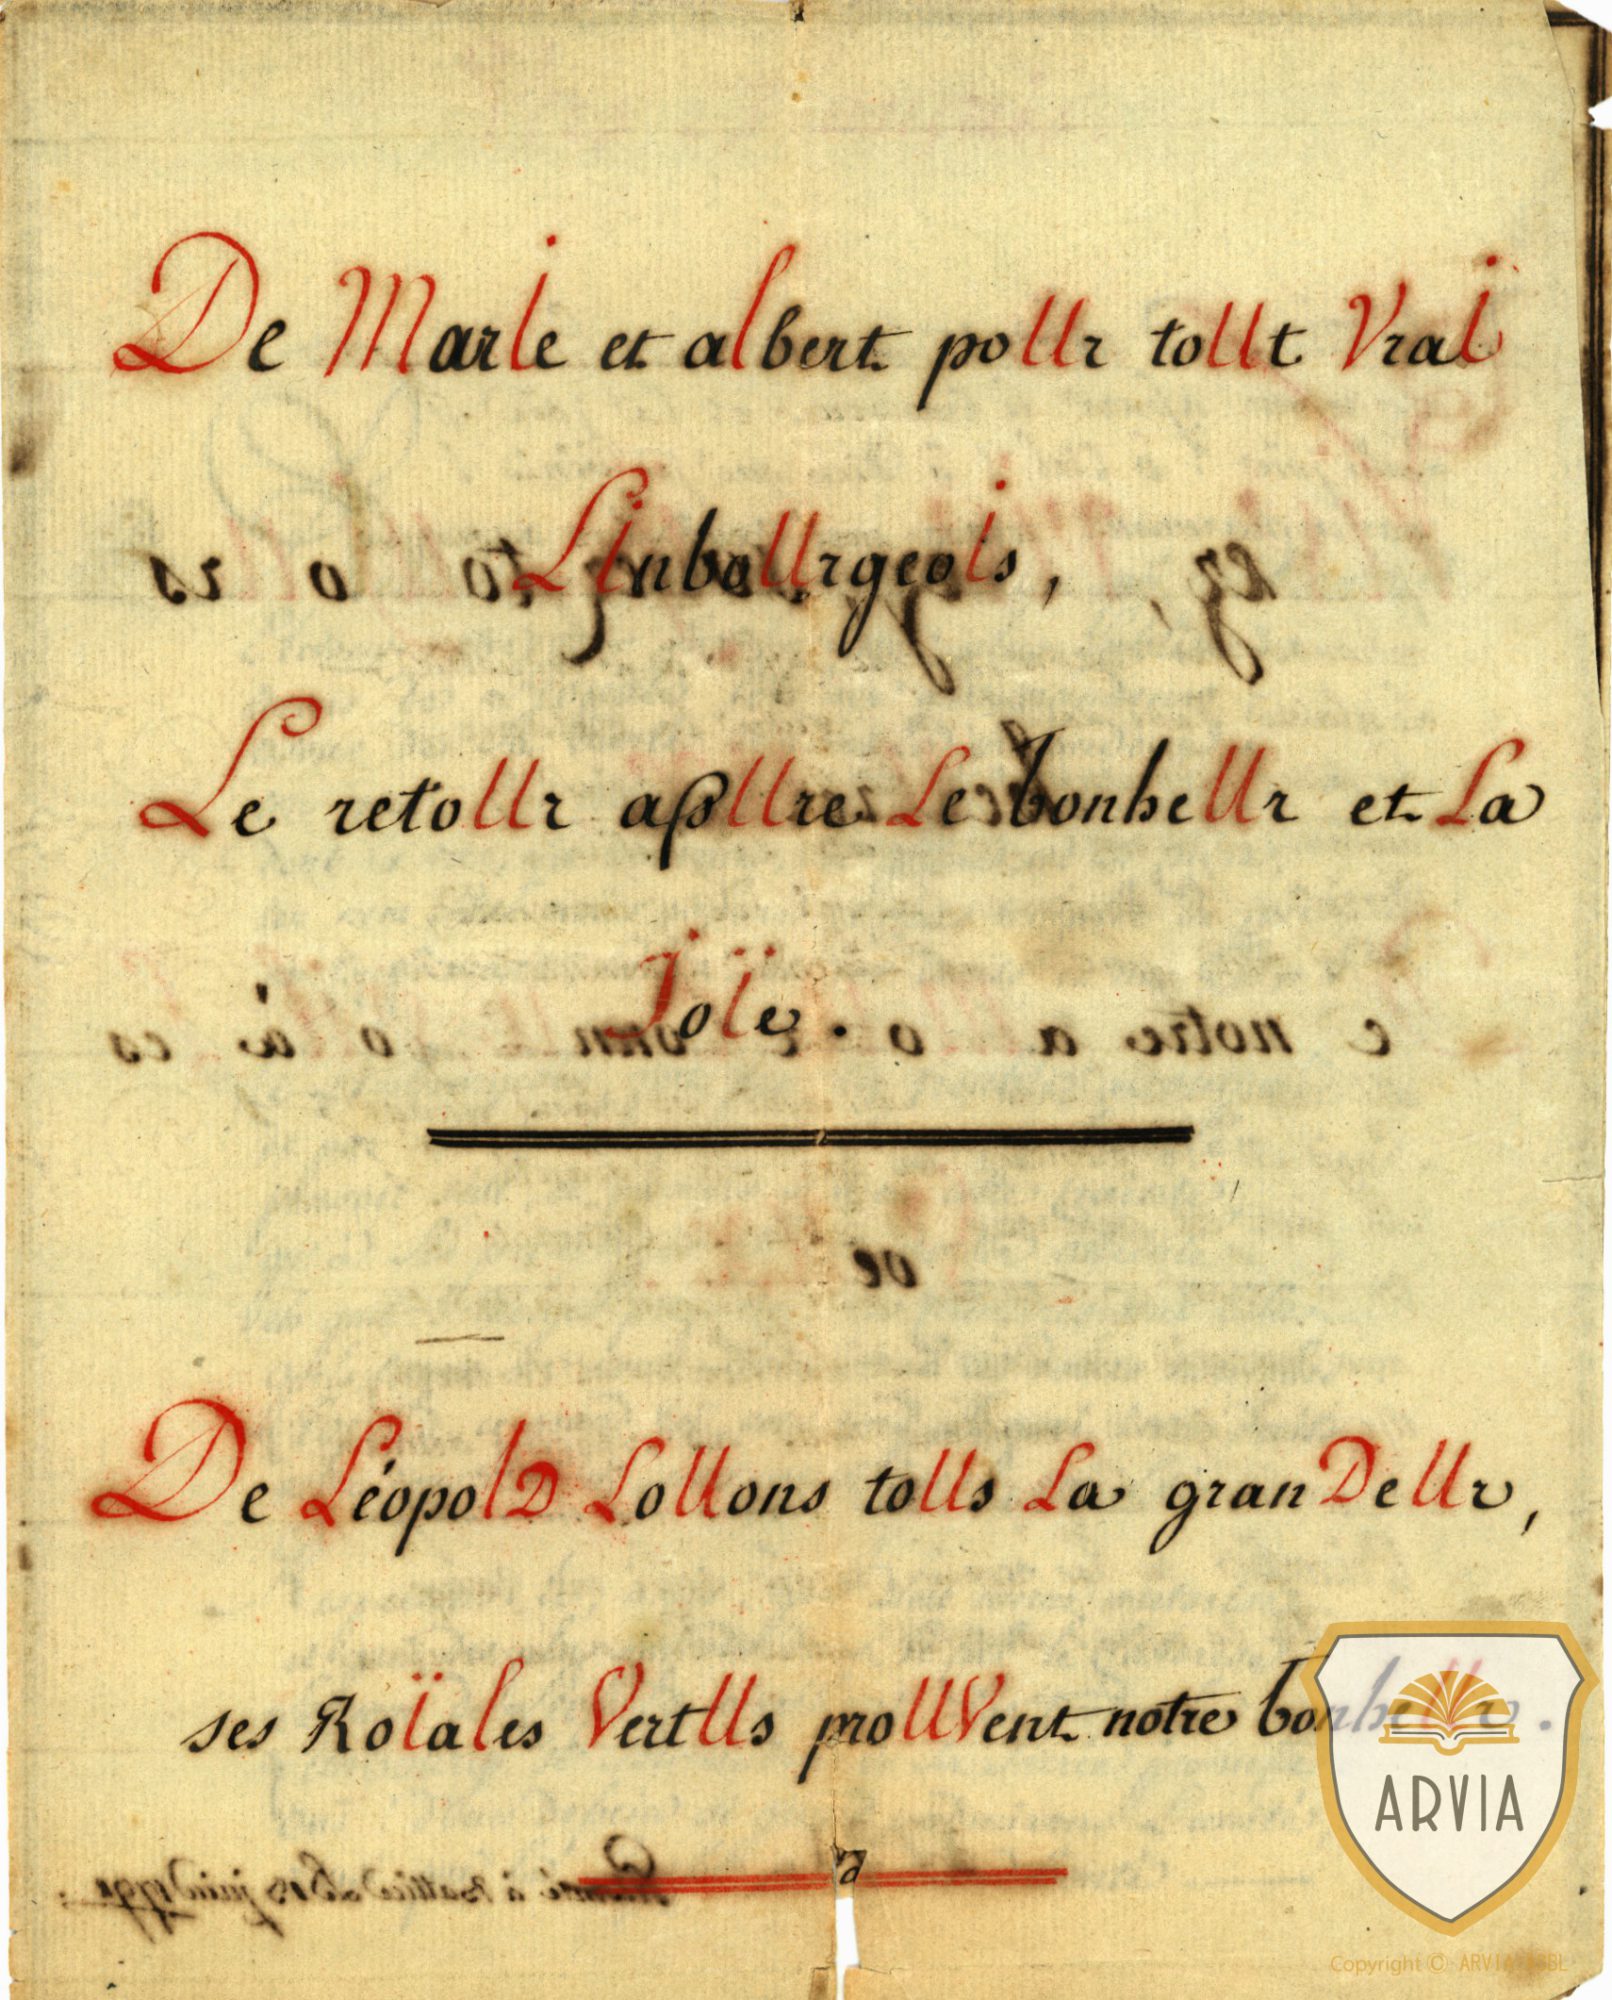 De MarIe et albert poUr toUt VraI
LInboUrgeoIs,
Le retoUr assUre Le bonheUr et La
JoÏe.
De LéopolD LoUons toUs La granDeUr,
ses RoÏales VertUs proUVent notre bonheUr.
ARVIA
Copyright © ARVIA ASBL